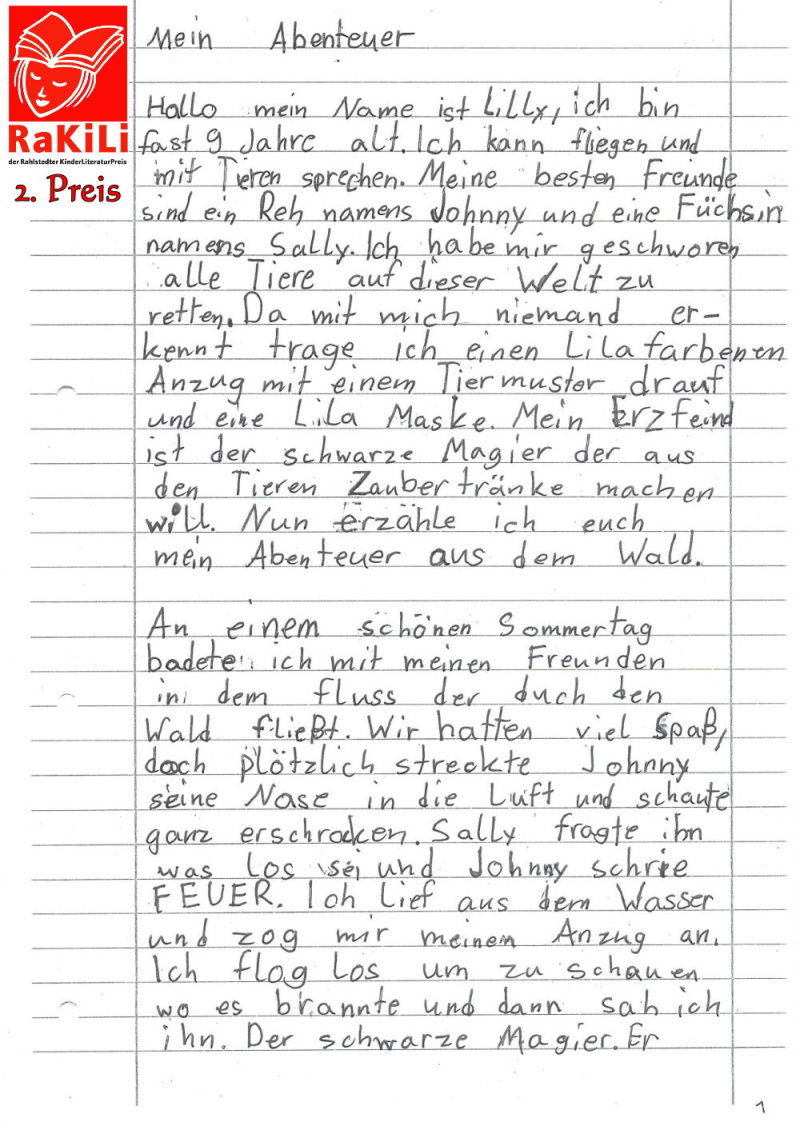 RaKiLi
der Rahlstedter KinderLiteraturPreis
2. Preis
Mein Abenteuer
Hallo mein Name ist Lilly, ich bin
fast 9 Jahre alt. Ich kann fliegen und
mit Tieren sprechen. Meine besten Freunde
sind ein Reh namens Johnny und eine Füchsin
namens Sally. Ich habe mir geschworen
alle Tiere auf dieser Welt zu
retten. Da mit mich niemand er-
kennt trage ich einen Lila farbenen
Anzug mit einem Tiermuster drauf
und eine Lila Maske. Mein Erzfeind
ist der schwarze Magier der aus
den Tieren Zaubertränke machen
will. Nun erzähle ich euch
mein Abenteuer aus dem Wald.
An einem schönen Sommertag
badete ich mit meinen Freunden
in dem fluss der duch den
Wald fließt. Wir hatten viel Spaß,
doch plötzlich streckte Johnny
seine Nase in die Luft und schaute
ganz erschrocken. Sally fragte ihn
was los sei und Johnny schrie
FEUER. Ich lief aus dem Wasser
und zog mir meinem Anzug an.
Ich flog los um zu schauen
wo es brannte und dann sah ich
ihn. Der schwarze Magier. Er
1